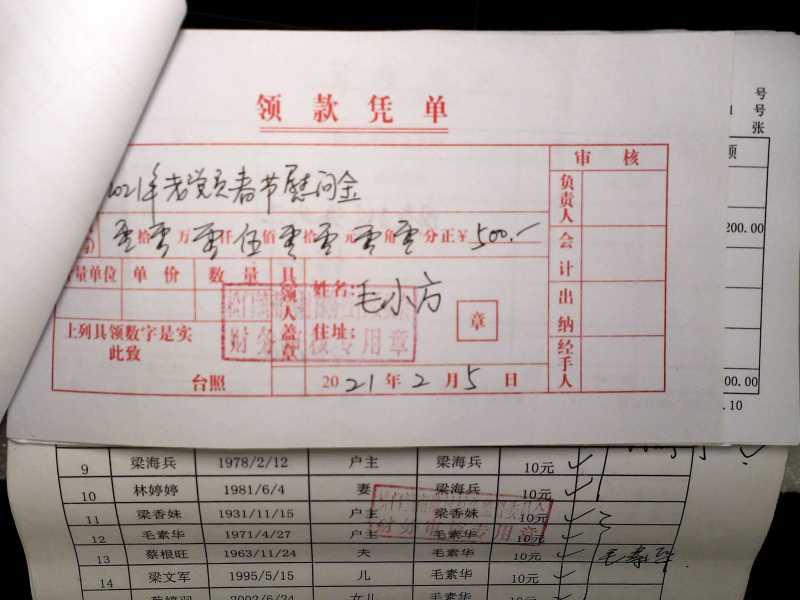 领款凭单
2021年老党员春节慰问金
零拾零万零仟伍佰零拾零元零角零分正¥500.-
审核
负责人
会计
出纳
经手人
量单位 单价 数量
具领人盖章
姓名:毛小方
住址:
章
财务审核专用章
上列具领数字是实
此致
台照
2021年2月5日
号
号
张
200.00
00.00
.10
9 梁海兵 1978/2/12 户主 梁海兵 10元
10 林婷婷 1981/6/4 妻 梁海兵 10元
11 梁香妹 1931/11/15 户主 梁香妹 10元
12 毛素华 1971/4/27 户主 毛素华 10元
13 蔡根旺 1963/11/24 夫 毛素华 10元 毛素华
14 梁文军 1995/5/15 儿 毛素华 10元
2002/6/24 女儿 毛素华 10元
财务审核专用章